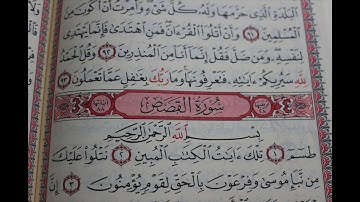 ٱلْبَلْدَةِ ٱلَّذِى حَرَّمَهَا وَلَهُۥ كُلُّ شَىْءٍ وَأُمِرْتُ أَنْ أَكُونَ مِنَ
ٱلْمُسْلِمِينَ ٩١ وَأَنْ أَتْلُوَا۟ ٱلْقُرْءَانَ فَمَنِ ٱهْتَدَىٰ فَإِنَّمَا يَهْتَدِى
لِنَفْسِهِۦ وَمَن ضَلَّ فَقُلْ إِنَّمَآ أَنَا۠ مِنَ ٱلْمُنذِرِينَ ٩٢ وَقُلِ ٱلْحَمْدُ
لِلَّهِ سَيُرِيكُمْ ءَايَٰتِهِۦ فَتَعْرِفُونَهَا وَمَا رَبُّكَ بِغَٰفِلٍ عَمَّا تَعْمَلُونَ ٩٣
سُورَةُ ٱلْقَصَصِ
بِسْمِ ٱللَّهِ ٱلرَّحْمَٰنِ ٱلرَّحِيمِ
طسٓمٓ ١ تِلْكَ ءَايَٰتُ ٱلْكِتَٰبِ ٱلْمُبِينِ ٢ نَتْلُوا۟ عَلَيْكَ
مِن نَّبَإِ مُوسَىٰ وَفِرْعَوْنَ بِٱلْحَقِّ لِقَوْمٍ يُؤْمِنُونَ ٣ إِنَّ